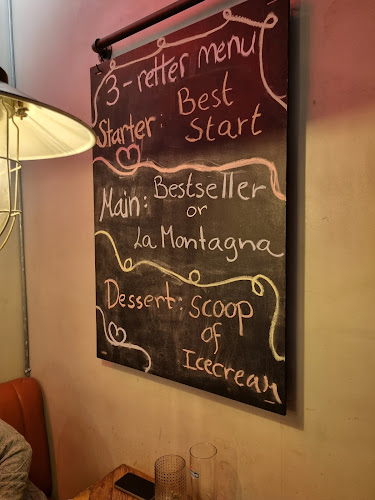 3-retter menu
Starter: Best
Start
Main: Bestseller
or
La Montagna
Dessert: Scoop
of
Icecream